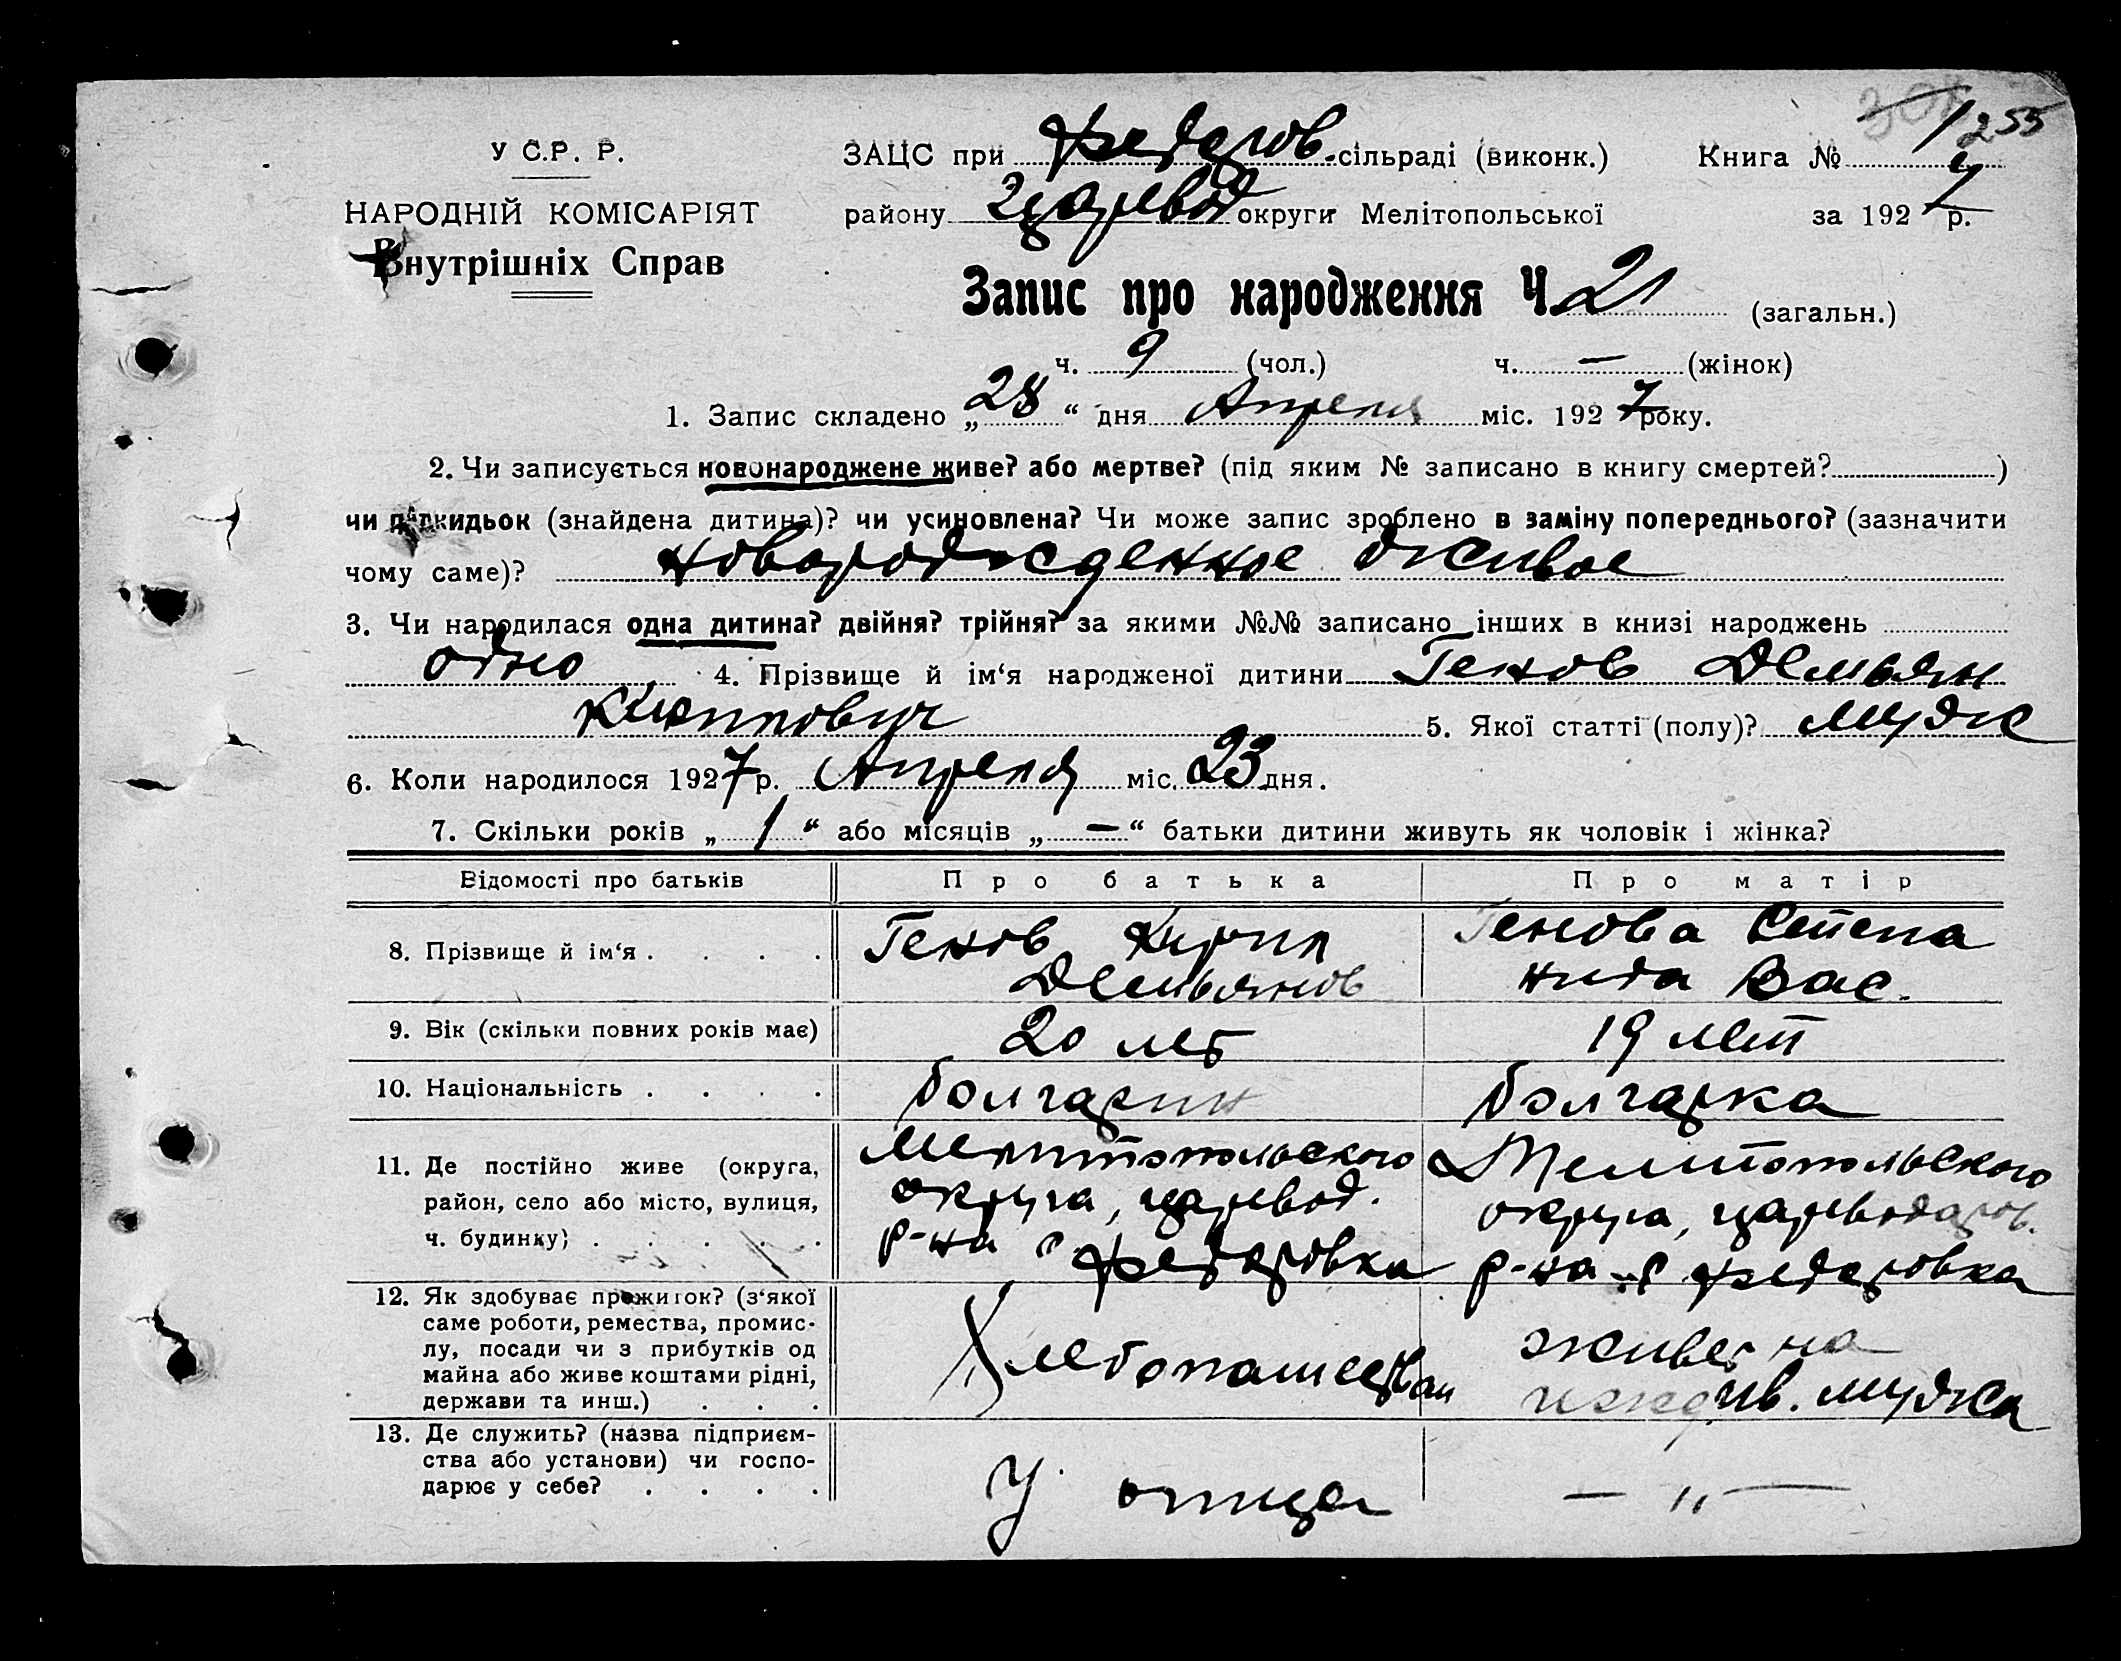 255
У С.Р. Р.
ЗАЦС при Федоров. сільраді (виконк.) Книга №
НАРОДНІЙ КОМІСАРІЯТ
району Царевод округи Мелітопольської за 1927 р.
Внутрішніх Справ
Запис про народження Ч. 21 (загальн.)
ч. 9 (чол.) ч. — (жінок)
1. Запис складено „28“ дня Апреля міс. 1927 року.
2. Чи записується новонароджене живе? або мертве? (під яким № записано в книгу смертей? )
чи підкидьок (знайдена дитина)? чи усиновлена? Чи може запис зроблено в заміну попереднього? (зазначити
чому саме)? новорожденное живое
3. Чи народилася одна дитина? двійня? трійня? за якими №№ записано інших в книзі народжень
одно 4. Прізвище й ім‘я народженої дитини Генов Демьян
5. Якої статті (полу)? муж
6. Коли народилося 1927 р. Апреля міс. 23 дня.
7. Скільки років „ 1 “ або місяців „ — “ батьки дитини живуть як чоловік і жінка?
Відомості про батьків Про батька Про матір
8. Прізвище й ім‘я . . . . Генов Кирил Генова Степа
Демьянов нида Вас.
9. Вік (скільки повних років має) 20 лет 19 лет
10. Національність . . . . болгарин болгарка
11. Де постійно живе (округа, Мелитопольского Мелитопольского
район, село або місто, вулиця, округа, царевод. округа, цареводаров.
ч. будинку) . . . . . р-на с Федоровка р-на с Федоровка
12. Як здобуває прожиток? (з‘якої
саме роботи, ремества, промис-
лу, посади чи з прибутків од Хлебопашеством живет на
майна або живе коштами рідні, иждив. мужа
держави та инш.) . . .
13. Де служить? (назва підприєм-
ства або установи) чи госпо-
дарює у себе? . . . . У отца — „ —